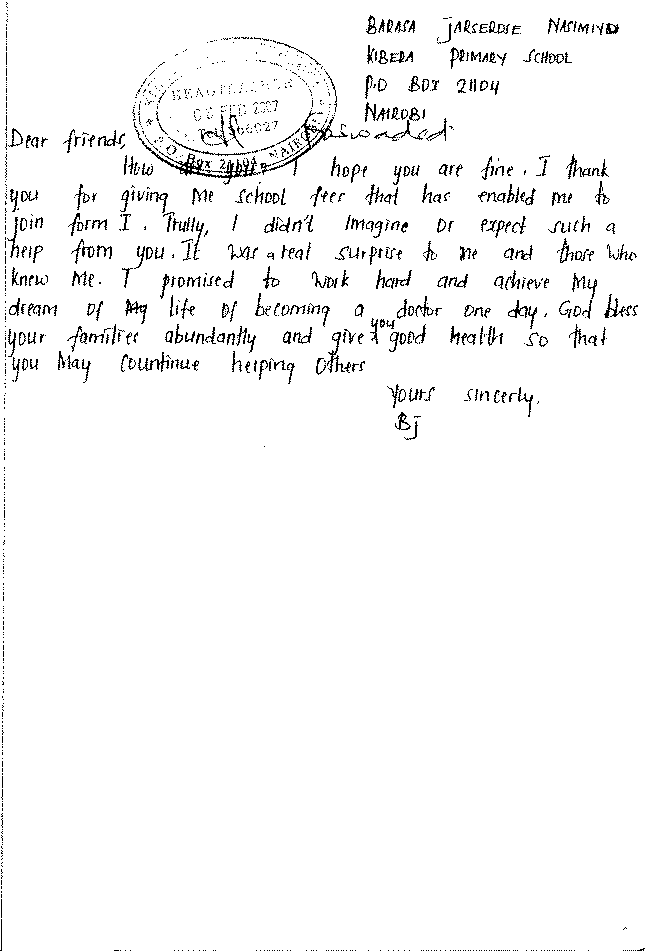 BARASA JARSERDSE NASIMIYU
KIBERA PRIMARY SCHOOL
P.O BOX 21104
NAIROBI
HEADTEACHER
FEB 2007
P.O. Box 21104 NAIROBI
Dear friends,
How are you? I hope you are fine. I thank
you for giving me school fees that has enabled me to
join form I. Trully, I didn't imagine or expect such a
help from you. It was a real surprise to me and those who
knew me. I promised to work hard and achieve my
dream of my life of becoming a doctor one day. God bless
your families abundantly and give you good health so that
you may countinue helping others
Yours sincerly,
Bj